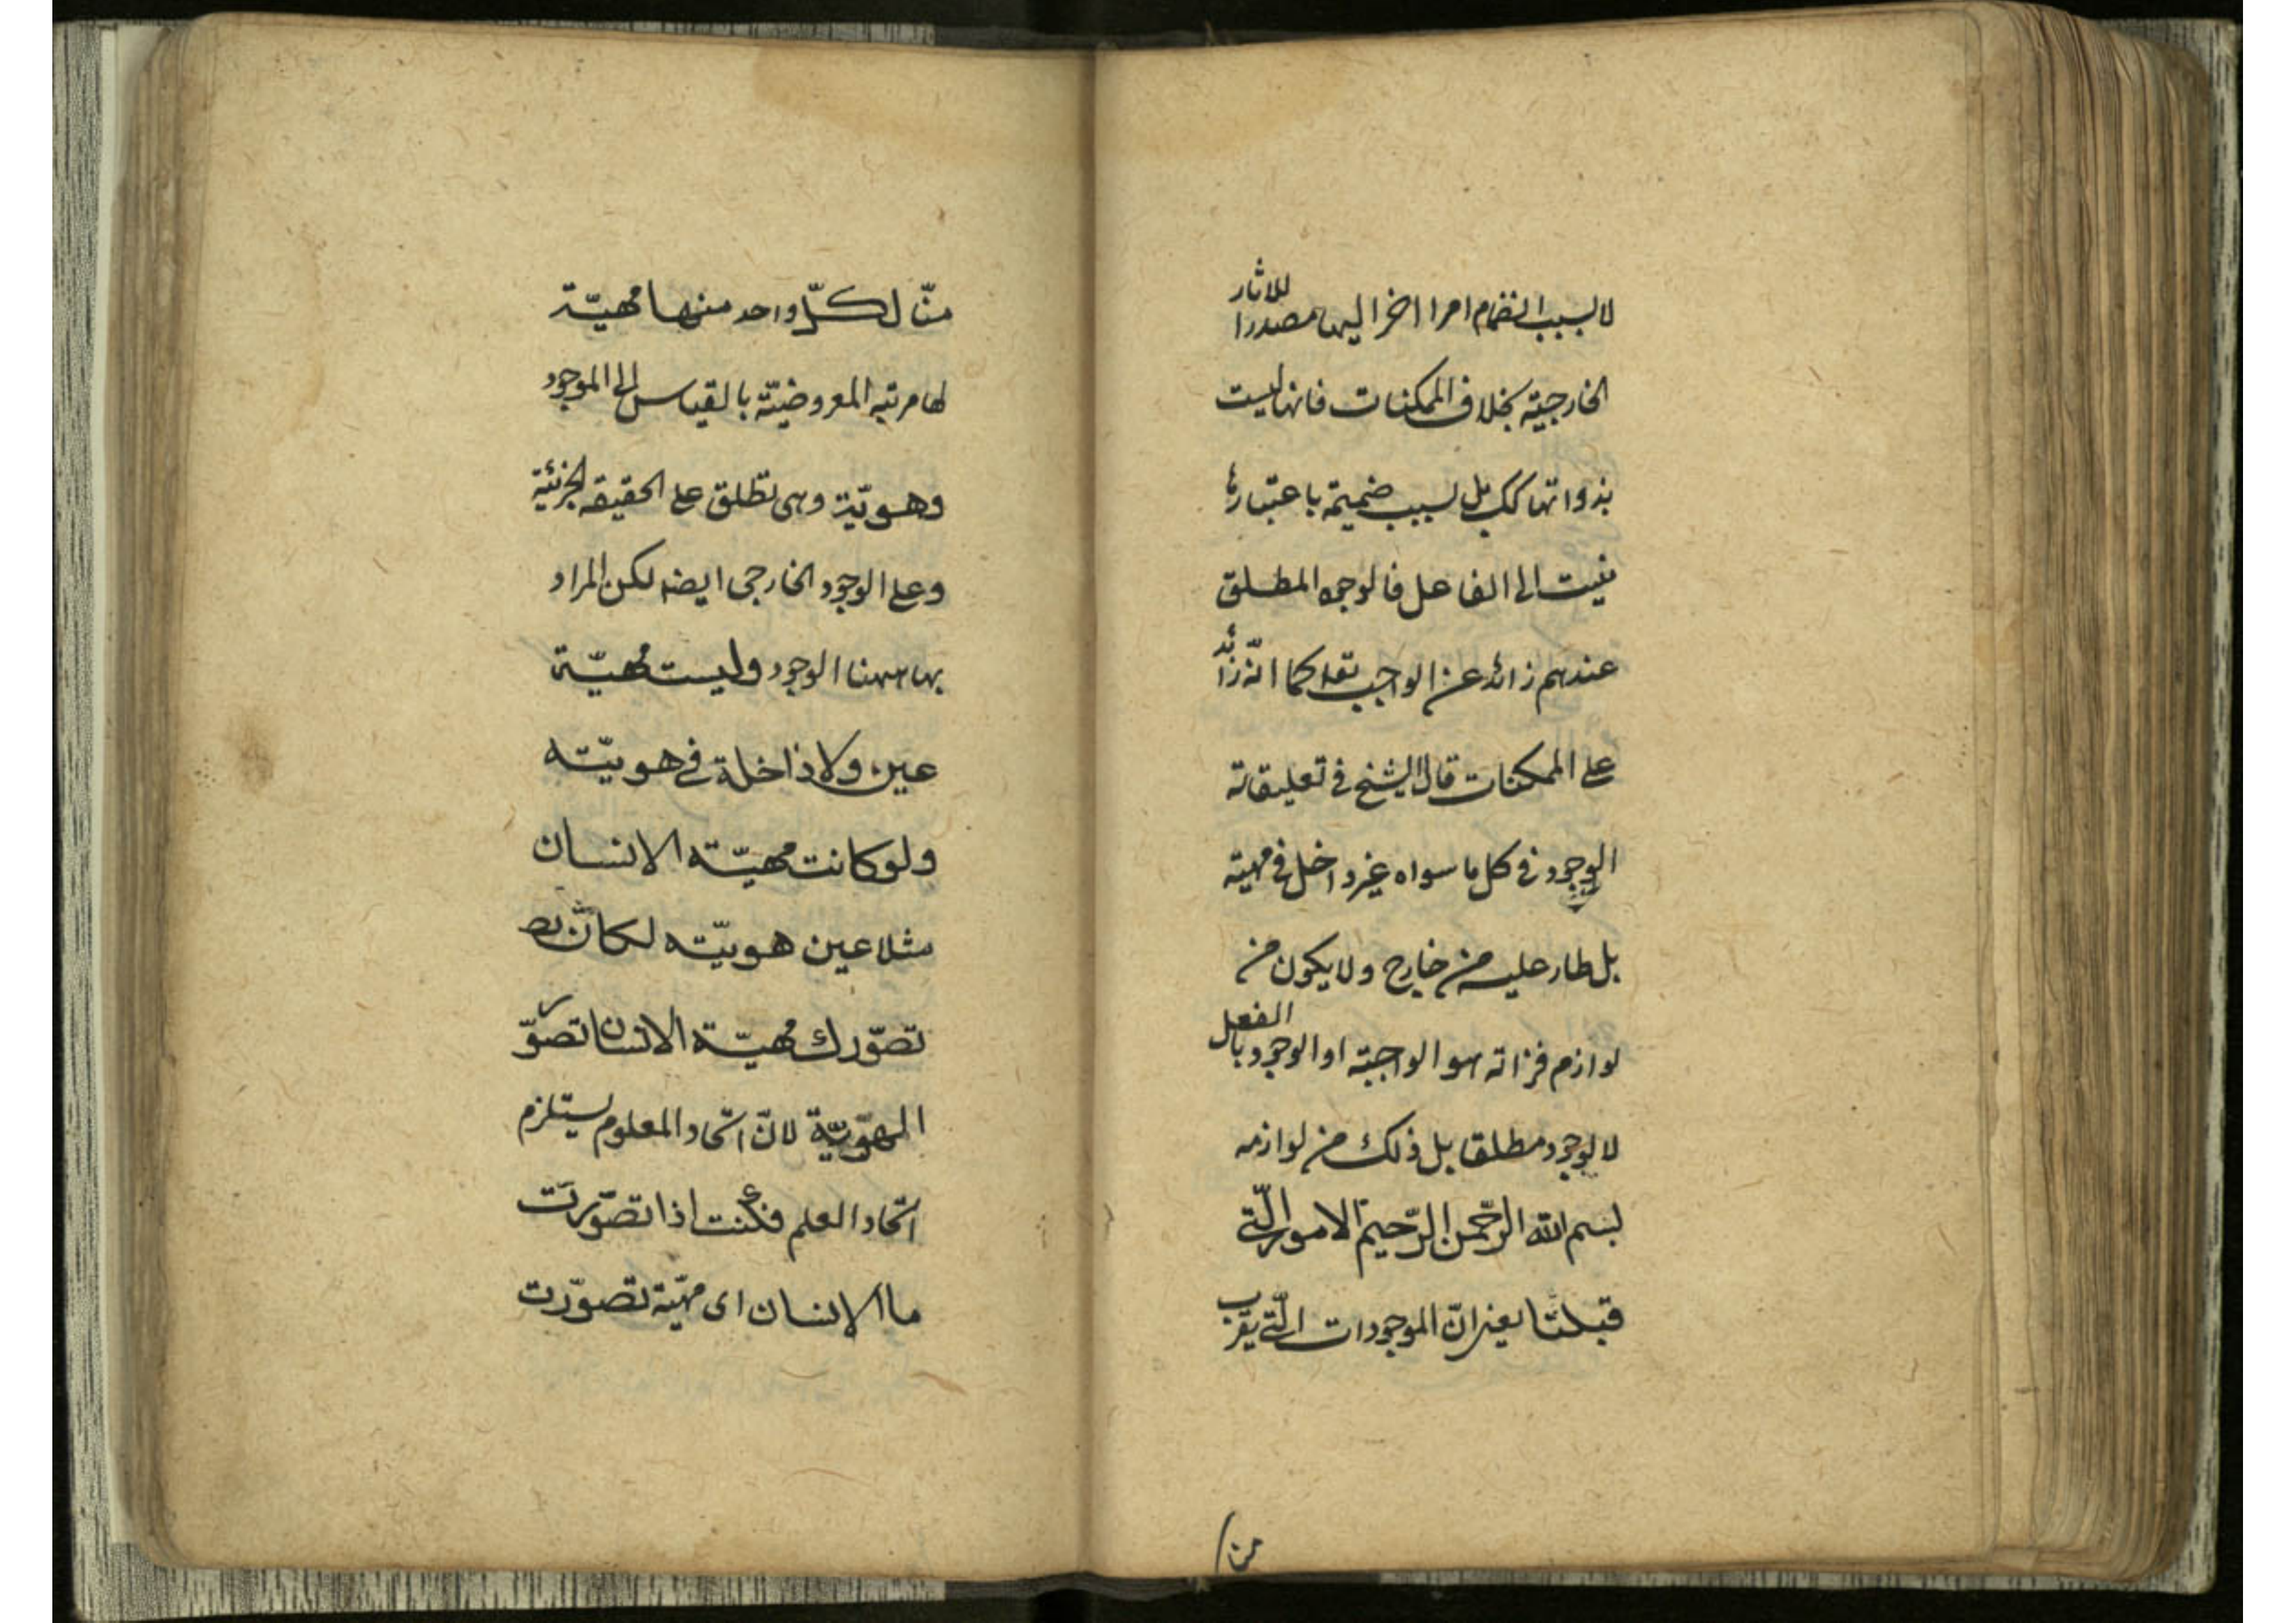 لا لسبب انضمام امرا اخر اليها مصدرا للاثار
الخارجية بخلاف الممكنات فانها ليست
بذواتها كك بل لسبب ضميمة باعتبارها
الى الفاعل فالوجود المطلق
عندهم زائد عن الواجب تعه كما انّه زائد
على الممكنات قال الشيخ في تعليقاته
الوجود في كل ما سواه غير داخل في مهيته
بل طار عليه من خارج ولا يكون من
لوازم فذاته هو الواجبية او الوجود بالفعل
لا لوجود مطلقا بل ذلك من لوازمه
بسم الله الرّحمن الرّحيم الامور الّتي
قبلنا يعنى انّ الموجودات الّتي يقرب
من
منّا لكلّ واحد منها مهيّة
لها مرتبه المعروضيّة بالقياس الى الموجود
وهويّة وهى تطلق على الحقيقه الجزئية
وعلى الوجود الخارجى ايضه لكن المراد
بها ههنا الوجود وليست مهيّة
عين ولا داخلة في هويّته
ولو كانت مهيّته الانسان
مثلا عين هويّته لكان
تصوّرك مهيّة الانسان تصوّر
الهوّيّة لانّ اتّحاد المعلوم يستلزم
اتّحاد العلم فكنت اذا تصوّرت
ما الانسان اى مهيّة تصوّرت